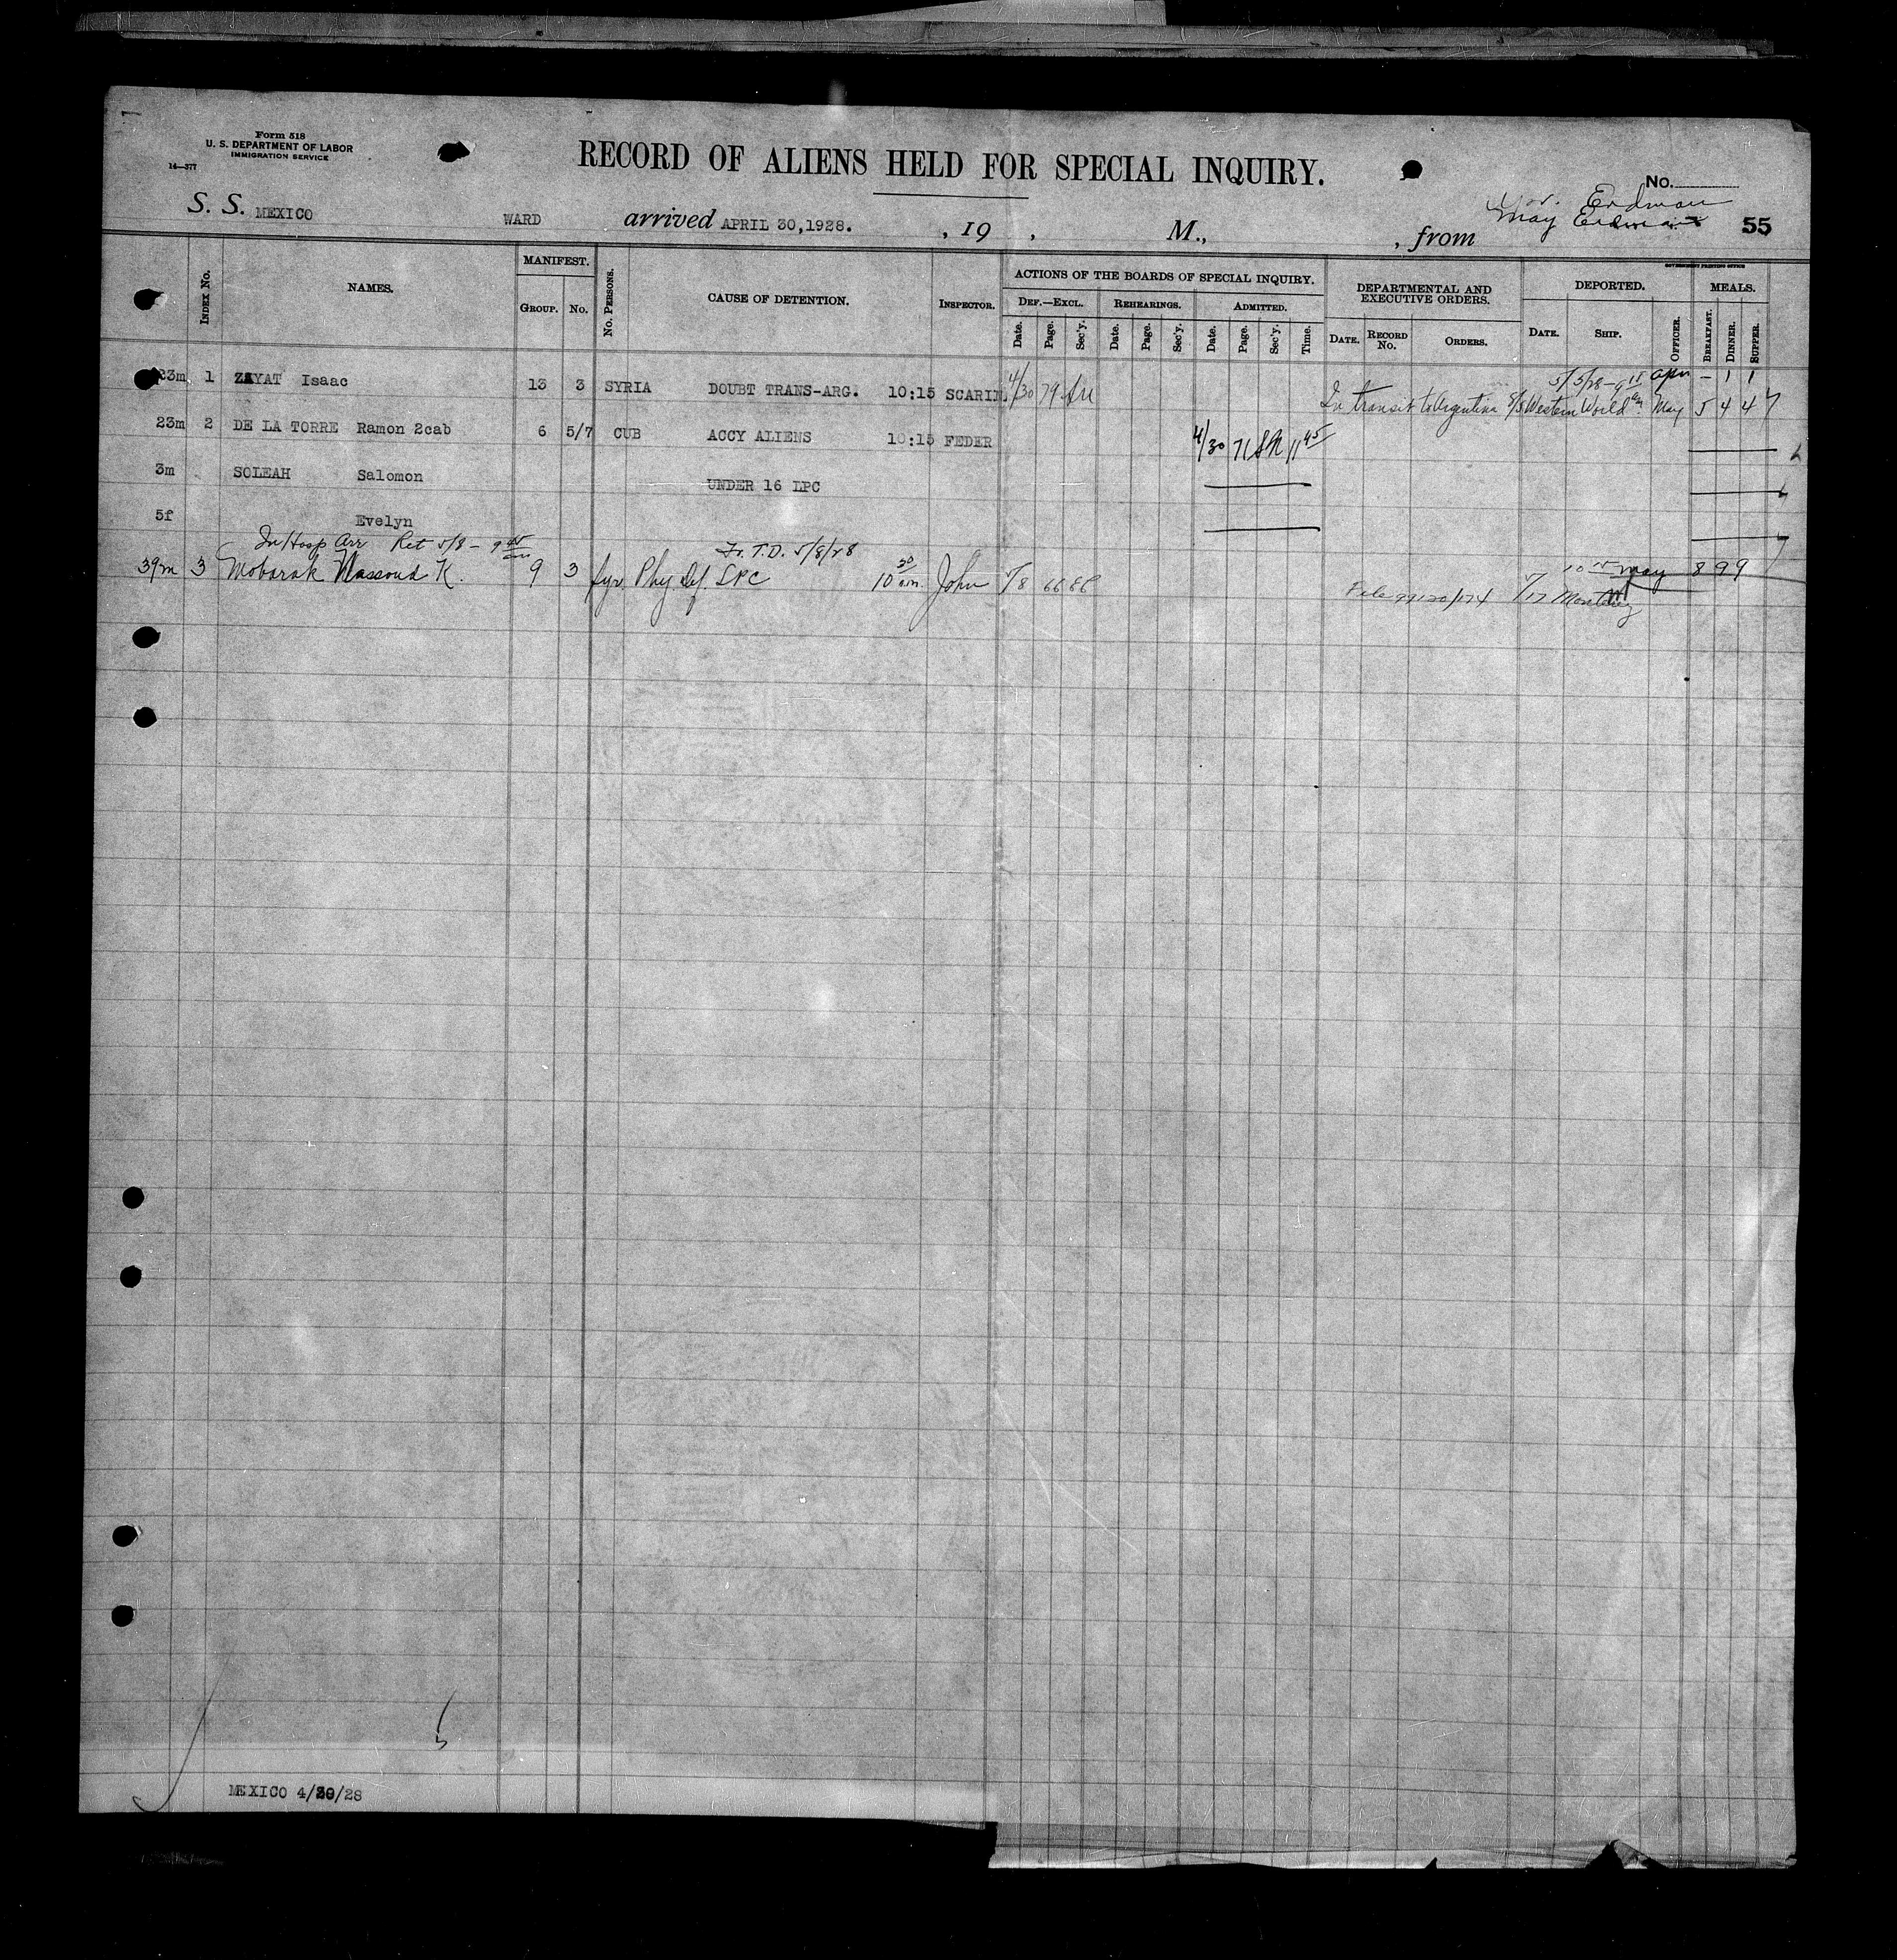 Form 518
U. S. DEPARTMENT OF LABOR
IMMIGRATION SERVICE
14—377
RECORD OF ALIENS HELD FOR SPECIAL INQUIRY.
No.
Erdman
S. S. MEXICO WARD arrived APRIL 30,1928. , 19 , M., , from May Erdman 55
GOVERNMENT PRINTING OFFICE
INDEX No. NAMES. MANIFEST. No. PERSONS. CAUSE OF DETENTION. INSPECTOR. ACTIONS OF THE BOARDS OF SPECIAL INQUIRY. DEPARTMENTAL AND EXECUTIVE ORDERS. DEPORTED. MEALS.
GROUP. No. DEF.—EXCL. REHEARINGS. ADMITTED.
Date. Page. Sec'y. Date. Page. Sec'y. Date. Page. Sec'y. Time. DATE. RECORD No. ORDERS. DATE. SHIP. OFFICER. BREAKFAST. DINNER. SUPPER.
5/5/28 - 9 15 Apr - 1 1
23m 1 ZAYAT Isaac 13 3 SYRIA DOUBT TRANS-ARG. 10:15 SCARIN 4/30 79
In transit to Argentina S/S Western World May 5 4 4
23m 2 DE LA TORRE Ramon 2cab 6 5/7 CUB ACCY ALIENS 10:15 FEDER 4/30 71 SR 11 45
3m SOLEAH Salomon UNDER 16 LPC
5f Evelyn
In Hosp Arr Ret 5/8 - 9 45 am T.D. 5/8/28
39m 3 Mobarak Massoud K. 9 3 Syr. Phy. Def. LPC 10 30 am. John 5/8 66 May 8 9 9
File 5/17 Monterey
MEXICO 4/30/28